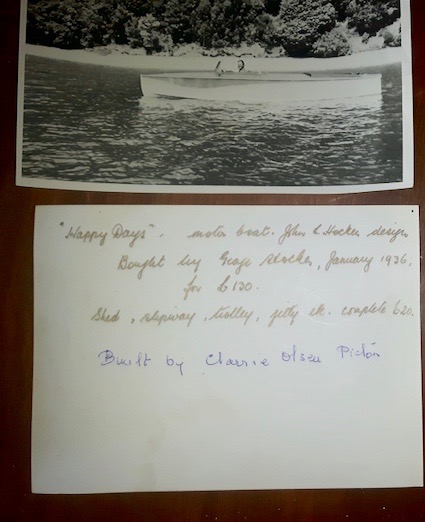 "Happy Days". motor boat. John L Hacker design
Bought by George Stocker, January 1936,
for £130.
Shed, slipway, trolley, jetty etc. complete £20.
Built by Clarrie Olsen Picton